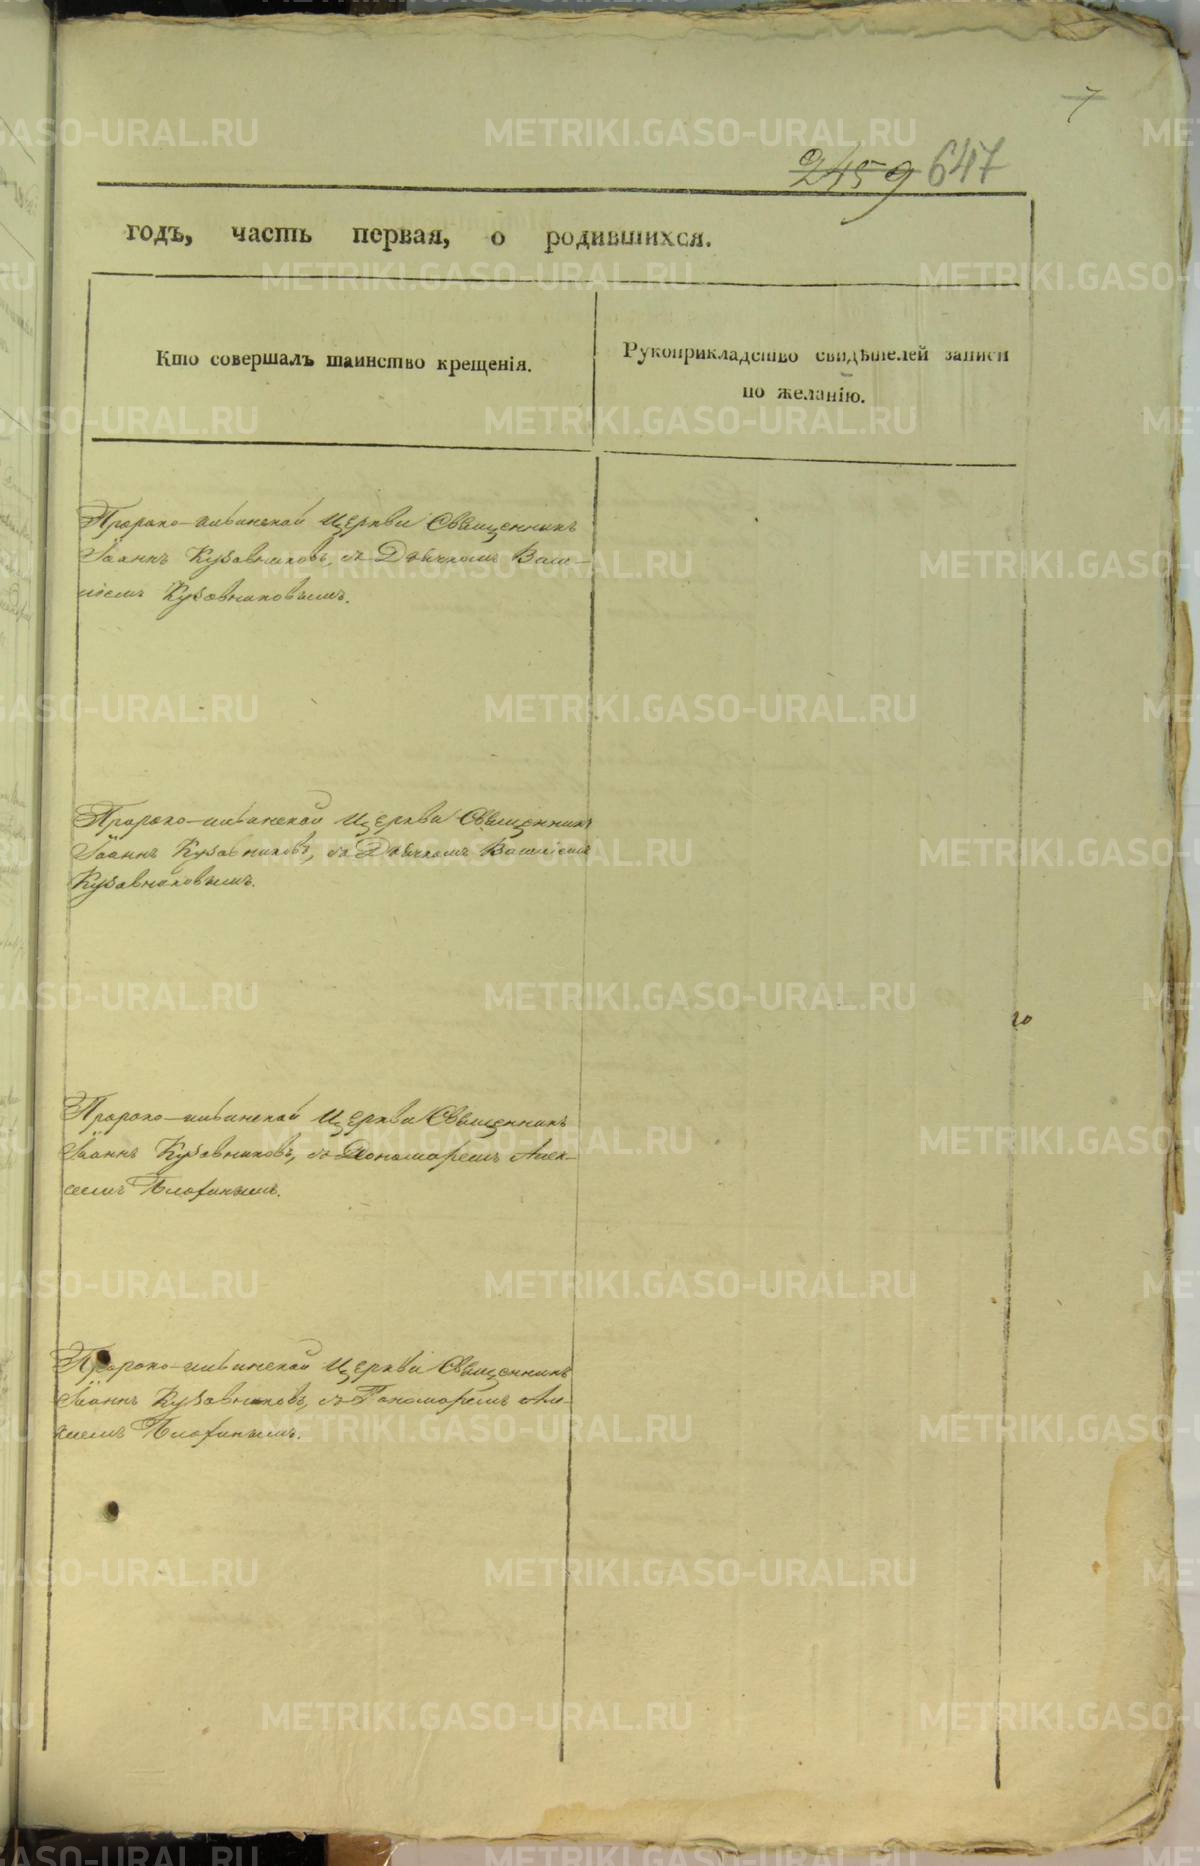 7
2459 647
годъ, часть первая, о родившихся.
Кто совершалъ таинство крещенія.
Рукоприкладство свидѣтелей записи
по желанію.
Пророко-ильинской Церкви Священникъ
Іоаннъ Кузовниковъ, съ Дьячкомъ Васи-
ліемъ Кузовниковымъ.
Пророко-ильинской Церкви Священникъ
Іоаннъ Кузовниковъ, съ Дьячкомъ Василіемъ
Кузовниковымъ.
Пророко-ильинской Церкви Священникъ
Іоаннъ Кузовниковъ, съ Пономаремъ Алек-
сеемъ
Пророко-ильинской Церкви Священникъ
Іоаннъ Кузовниковъ, съ Пономаремъ Але-
ксеемъ
METRIKI.GASO-URAL.RU